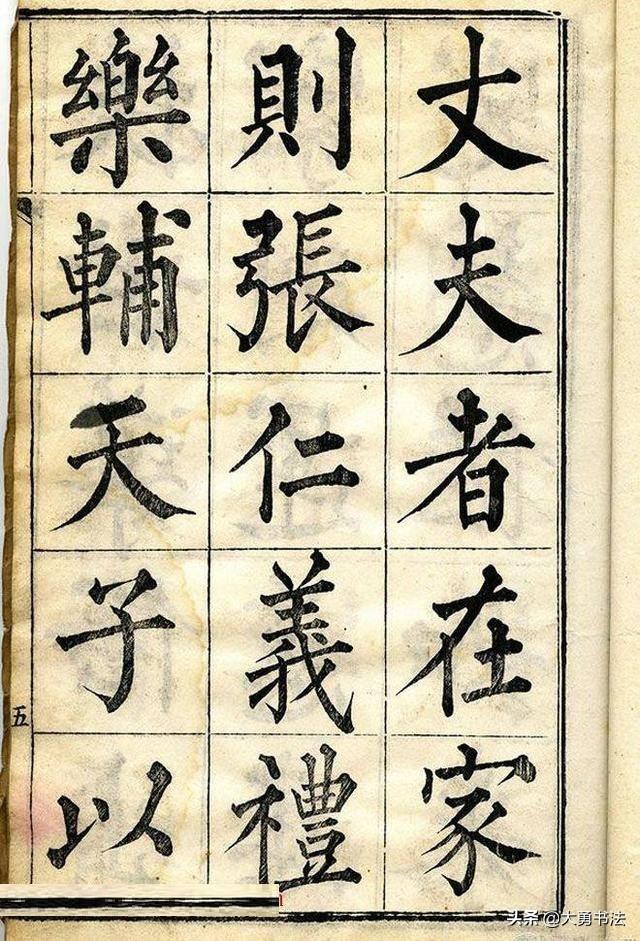 丈夫者在家
則張仁義禮
樂輔天子以
五
头条 @大勇书法